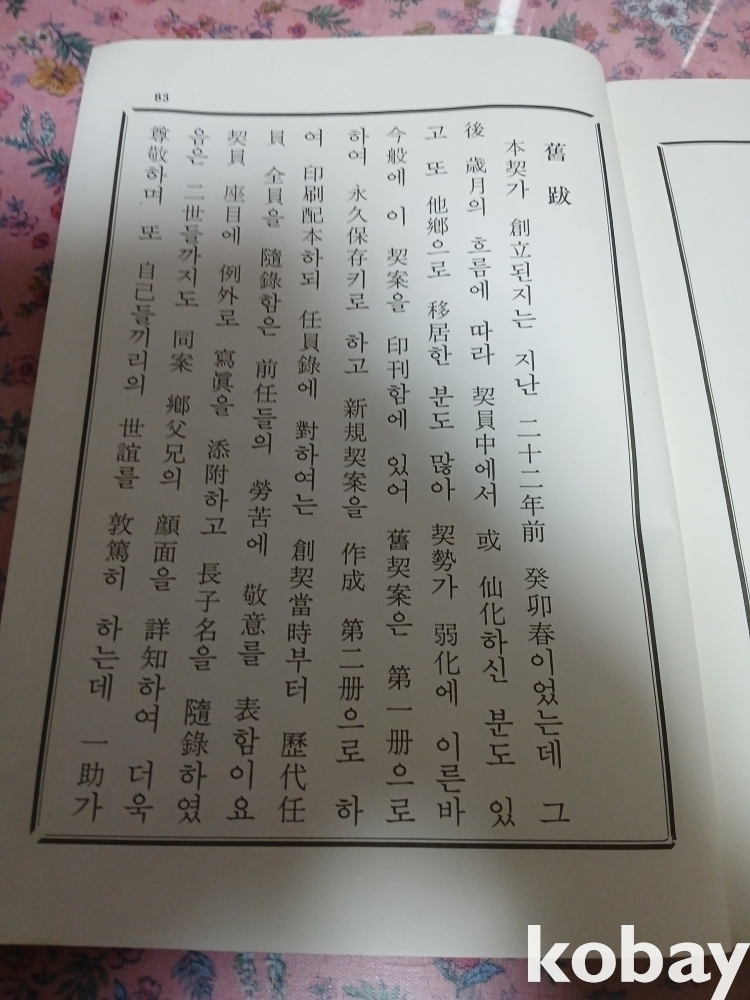 83
舊跋
本契가 創立된지는 지난 二十二年前 癸卯春이었는데 그
後 歲月의 흐름에 따라 契員中에서 或 仙化하신 분도 있
고 또 他鄕으로 移居한 분도 많아 契勢가 弱化에 이른바
今般에 이 契案을 印刊함에 있어 舊契案은 第一册으로
하여 永久保存키로 하고 新規契案을 作成 第二册으로 하
여 印刷配本하되 任員錄에 對하여는 創契當時부터 歷代任
員 全員을 隨錄함은 前任들의 勞苦에 敬意를 表함이요
契員 座目에 例外로 寫眞을 添附하고 長子名을 隨錄하였
음은 二世들까지도 同案 鄕父兄의 顔面을 詳知하여 더욱
尊敬하며 또 自己들끼리의 世誼를 敦篤히 하는데 一助가
kobay